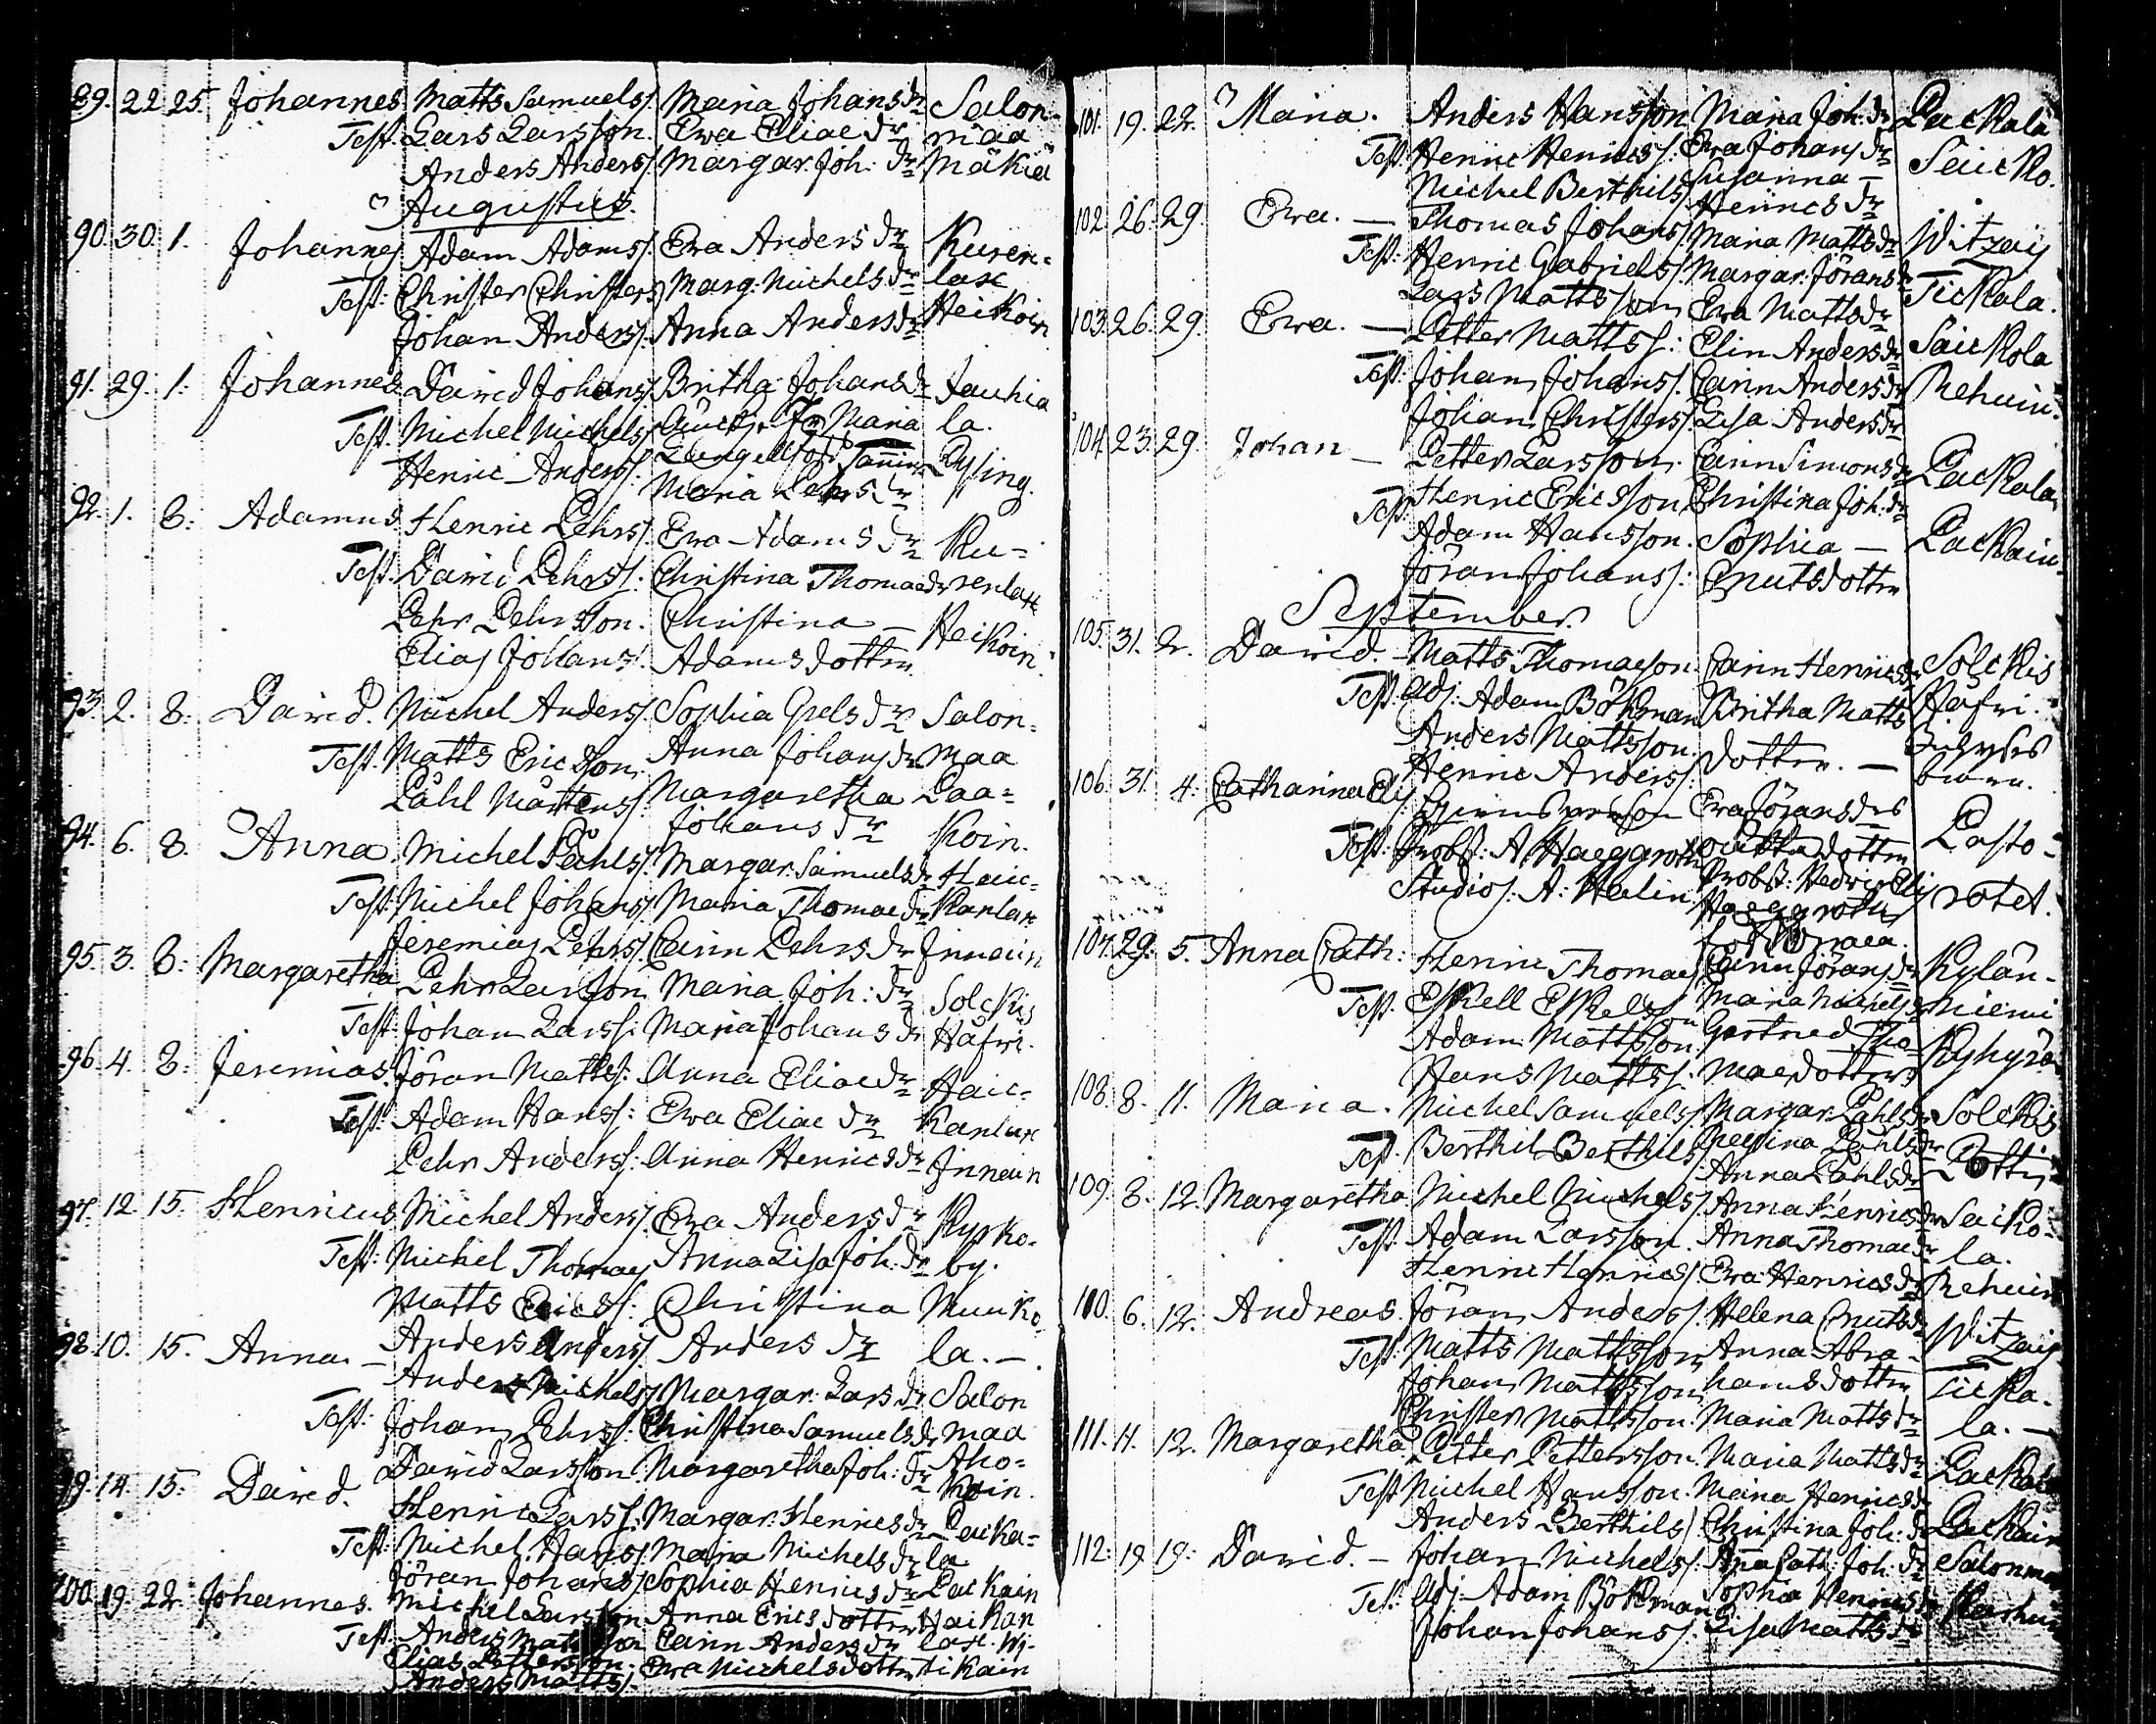 89. 22 25. Johannes Matts Samuels/. Maria Johansdr Salon-
Test. Lars Larsson. Ewa Eliae dr maa
Anders Anders/. Margar. Joh: dr Mäkiä
Augustus.
90. 30. 1. Johannes Adam Adams/. Ewa Anders dr Kuren-
Test: Christer Christers/ Marg: Michels dr lax
Johan Anders/. Anna Anders dr Heikoin
91. 29. 1. Johannes. David Johans/. Britha Johans dr Jauhia
Test. Michel Michels/. Maria la.
Henric Anders/:
Maria Pehrs dr
92. 1. 8. Adamus. Henric Pehrs/. Ewa Adams dr Ku-
Test. David Pehrs/. Christina Thomaedr renlax
Pehr Pehrsson. Christina — Heikoin.
Elias Johans/. Adamsdotter
93. 2. 8. David. Michel Anders/. Sophia Grels dr Salon-
Test. Matts Ericsson. Anna Johans dr maa
Påhl Mårtens/. Margaretha Paa-
Johans dr koin.
94. 6. 8. Anna. Michel Påhls/. Margar. Samuels dr Haic-
Test: Michel Johans/. Maria Thomae dr kanlax
Jeremias Pehrs/ Carin Pehrs dr Innain
95. 3. 8. Margaretha Pehr Larsson Maria Joh: dr Solckis
Test. Johan Larss/: Maria Johans dr Håfwi.
96. 4. 8. Jeremias. Jöran Matts/: Anna Eliae dr Haic-
Test: Adam Hans/: Ewa Eliae dr kanlax
Pehr Anders/: Anna Henrics dr Innain
97. 12. 15. Henricus Michel Anders/. Ewa Anders dr Kyrko-
Test: Michel Thomas/ Anna Lisa Joh: dr by.
Matts Erics/: Christina Muuko
Anders Anders/ Anders dr la. —
98. 10. 15. Anna. — Anders Michels/ Margar: Lars dr Salon
Test: Johan Pehrs/: Christina Samuels dr maa
David Larsson. Margaretha Joh: dr Aho-
koin.
99. 14. 15. David. Henric Larss/: Margar: Henrics dr Packa-
Test: Michel Hans/. Maria Michels dr la
Jöran Johans/ Sophia Henrics dr Packain
100. 19. 22. Johannes. Michel Larsson Anna Ericsdotter Haikan
Test. Anders Matsson Carin Anders dr lax.
Elias Pettersson. Ewa Michelsdotter tikain
Anders Matts/.
101. 19. 22. Maria. Anders Hansson Maria Joh: dr Packala
Test: Henric Henrics/: Ewa Johans dr Saicko.
Michel Berthils/ Susanna —
Henrics dr
102. 26. 29. Ewa. — Thomas Johans/ Maria Matts dr Witzaij
Test: Henric Gabriels/ Margar: Jörans dr Tickala.
Lars Mattsson Ewa Matts dr
103. 26. 29. Ewa. — Petter Matts/: Elin Anders dr Saickola
Test: Johan Johans/. Carin Anders dr Rehuin.
Johan Christers/ Lisa Anders dr
104. 23. 29. Johan — Petter Larsson. Carin Simons dr Packala
Test: Henric Ericsson Christina Joh: dr
Adam Hansson. Sophia — Packain.
Jöran Johans/: Cnutsdotter
September.
105. 31. 2. David. Matts Thomasson. Carin Henrics dr Solckis
Test. Adj: Adam Bökman Britha Matts Håfwi.
Anders Mattsson. dotter. —
Henric Anders/.
106. 31. 4. Catharina Elis. Ewa Jörans Pasto-
Test: Probst: A: Haeggroth dotter
Studios: A: Helin Probst: Hedwig Elis. ratet.
Haeggroth
107. 29. 5. Anna Cath: Henric Thomas/ Carin Jörans dr Kylän-
Test. Eskell Eskelsson Maria Michels dr niemi
Adam Mattsson Gertrud Tho- Kyhyrä
Hans Matts/. maedotter
108. 8. 11. Maria. Michel Samuels/ Margar: Påhls dr Solckis
Test. Berthil Berthils/ Regina Påhls dr
Anna Påhls dr Pottij
109. 8. 12. Margaretha Michel Michels/ Anna Henrics dr Saicko-
Test. Adam Larsson. Anna Thomae dr la.
Henric Henrics/ Ewa Henrics dr Rehuin
110. 6. 12. Andreas Jöran Anders/. Helena Cnuts dr Witzaij
Test: Matts Mattsson Anna Abra- Ticka-
Johan Mattsson hamsdotter la. —
Christer Mattsson. Maria Matts dr
111. 11. 12. Margaretha Petter Pettersson. Maria Matts dr Packala
Test Michel Hansson. Maria Henrics dr
Anders Berthils/ Christina Joh: dr Packain
112. 19 19: David. — Johan Michels/: Ana Cath: Joh. dr Salonmaa
Test: Adj. Adam Bökman Sophia Henrics dr
Johan Johans/. Lisa Matts dr